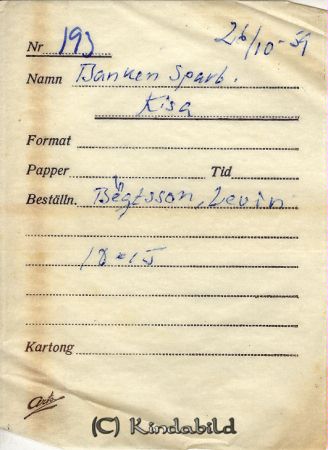 26/10-59
Nr 193
Namn Banken Sparb.
Kisa
Format
Papper Tid
Beställn. Begtsson, Levin
18-15
Kartong
Arto
(C) Kindabild